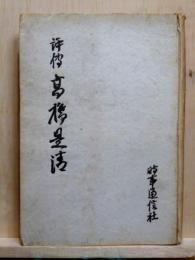 評傳
高橋是清
時事通信社